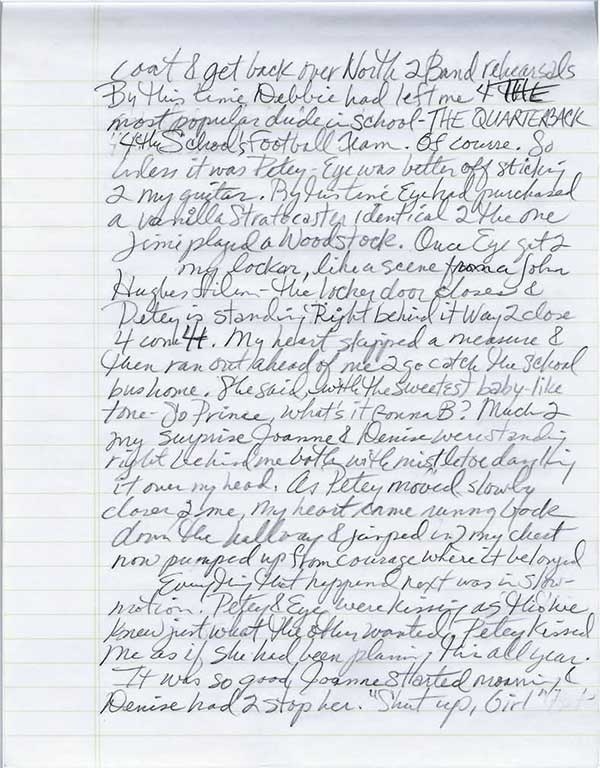 coat & get back over North 2 Band rehearsals
By this time Debbie had left me 4 THE
most popular dude in school - THE QUARTERBACK
4 the School's Football Team. Of course. So
unless it was Petey - Eye was better off sticking
2 my guitar. By this time Eye had purchased
a vanilla Stratocaster identical 2 the one
Jimi played @ Woodstock. Once Eye get 2
my locker, like a scene from a John
Hughes film - the locker door closes &
Petey is standing Right behind it Way 2 close
4 comf4t. My heart skipped a measure &
then ran out ahead of me 2 go catch the school
bus home. She said, with the sweetest baby-like
tone - Yo Prince, what's it Gonna B? Much 2
my surprise Joanne & Denise were standing
right behind me both with mistletoe dangling
it over my head. As Petey moved slowly
closer 2 me, my heart came running back
down the hallway & jumped in 2 my chest
now pumped up from courage where it belonged
Everything that happened next was in slow-
motion. Petey & Eye were kissing as tho' we
knew just what the other wanted. Petey kissed
me as if she had been planning this all year.
It was so good Joanne started moaning &
Denise had 2 stop her. "Shut up, Girl"